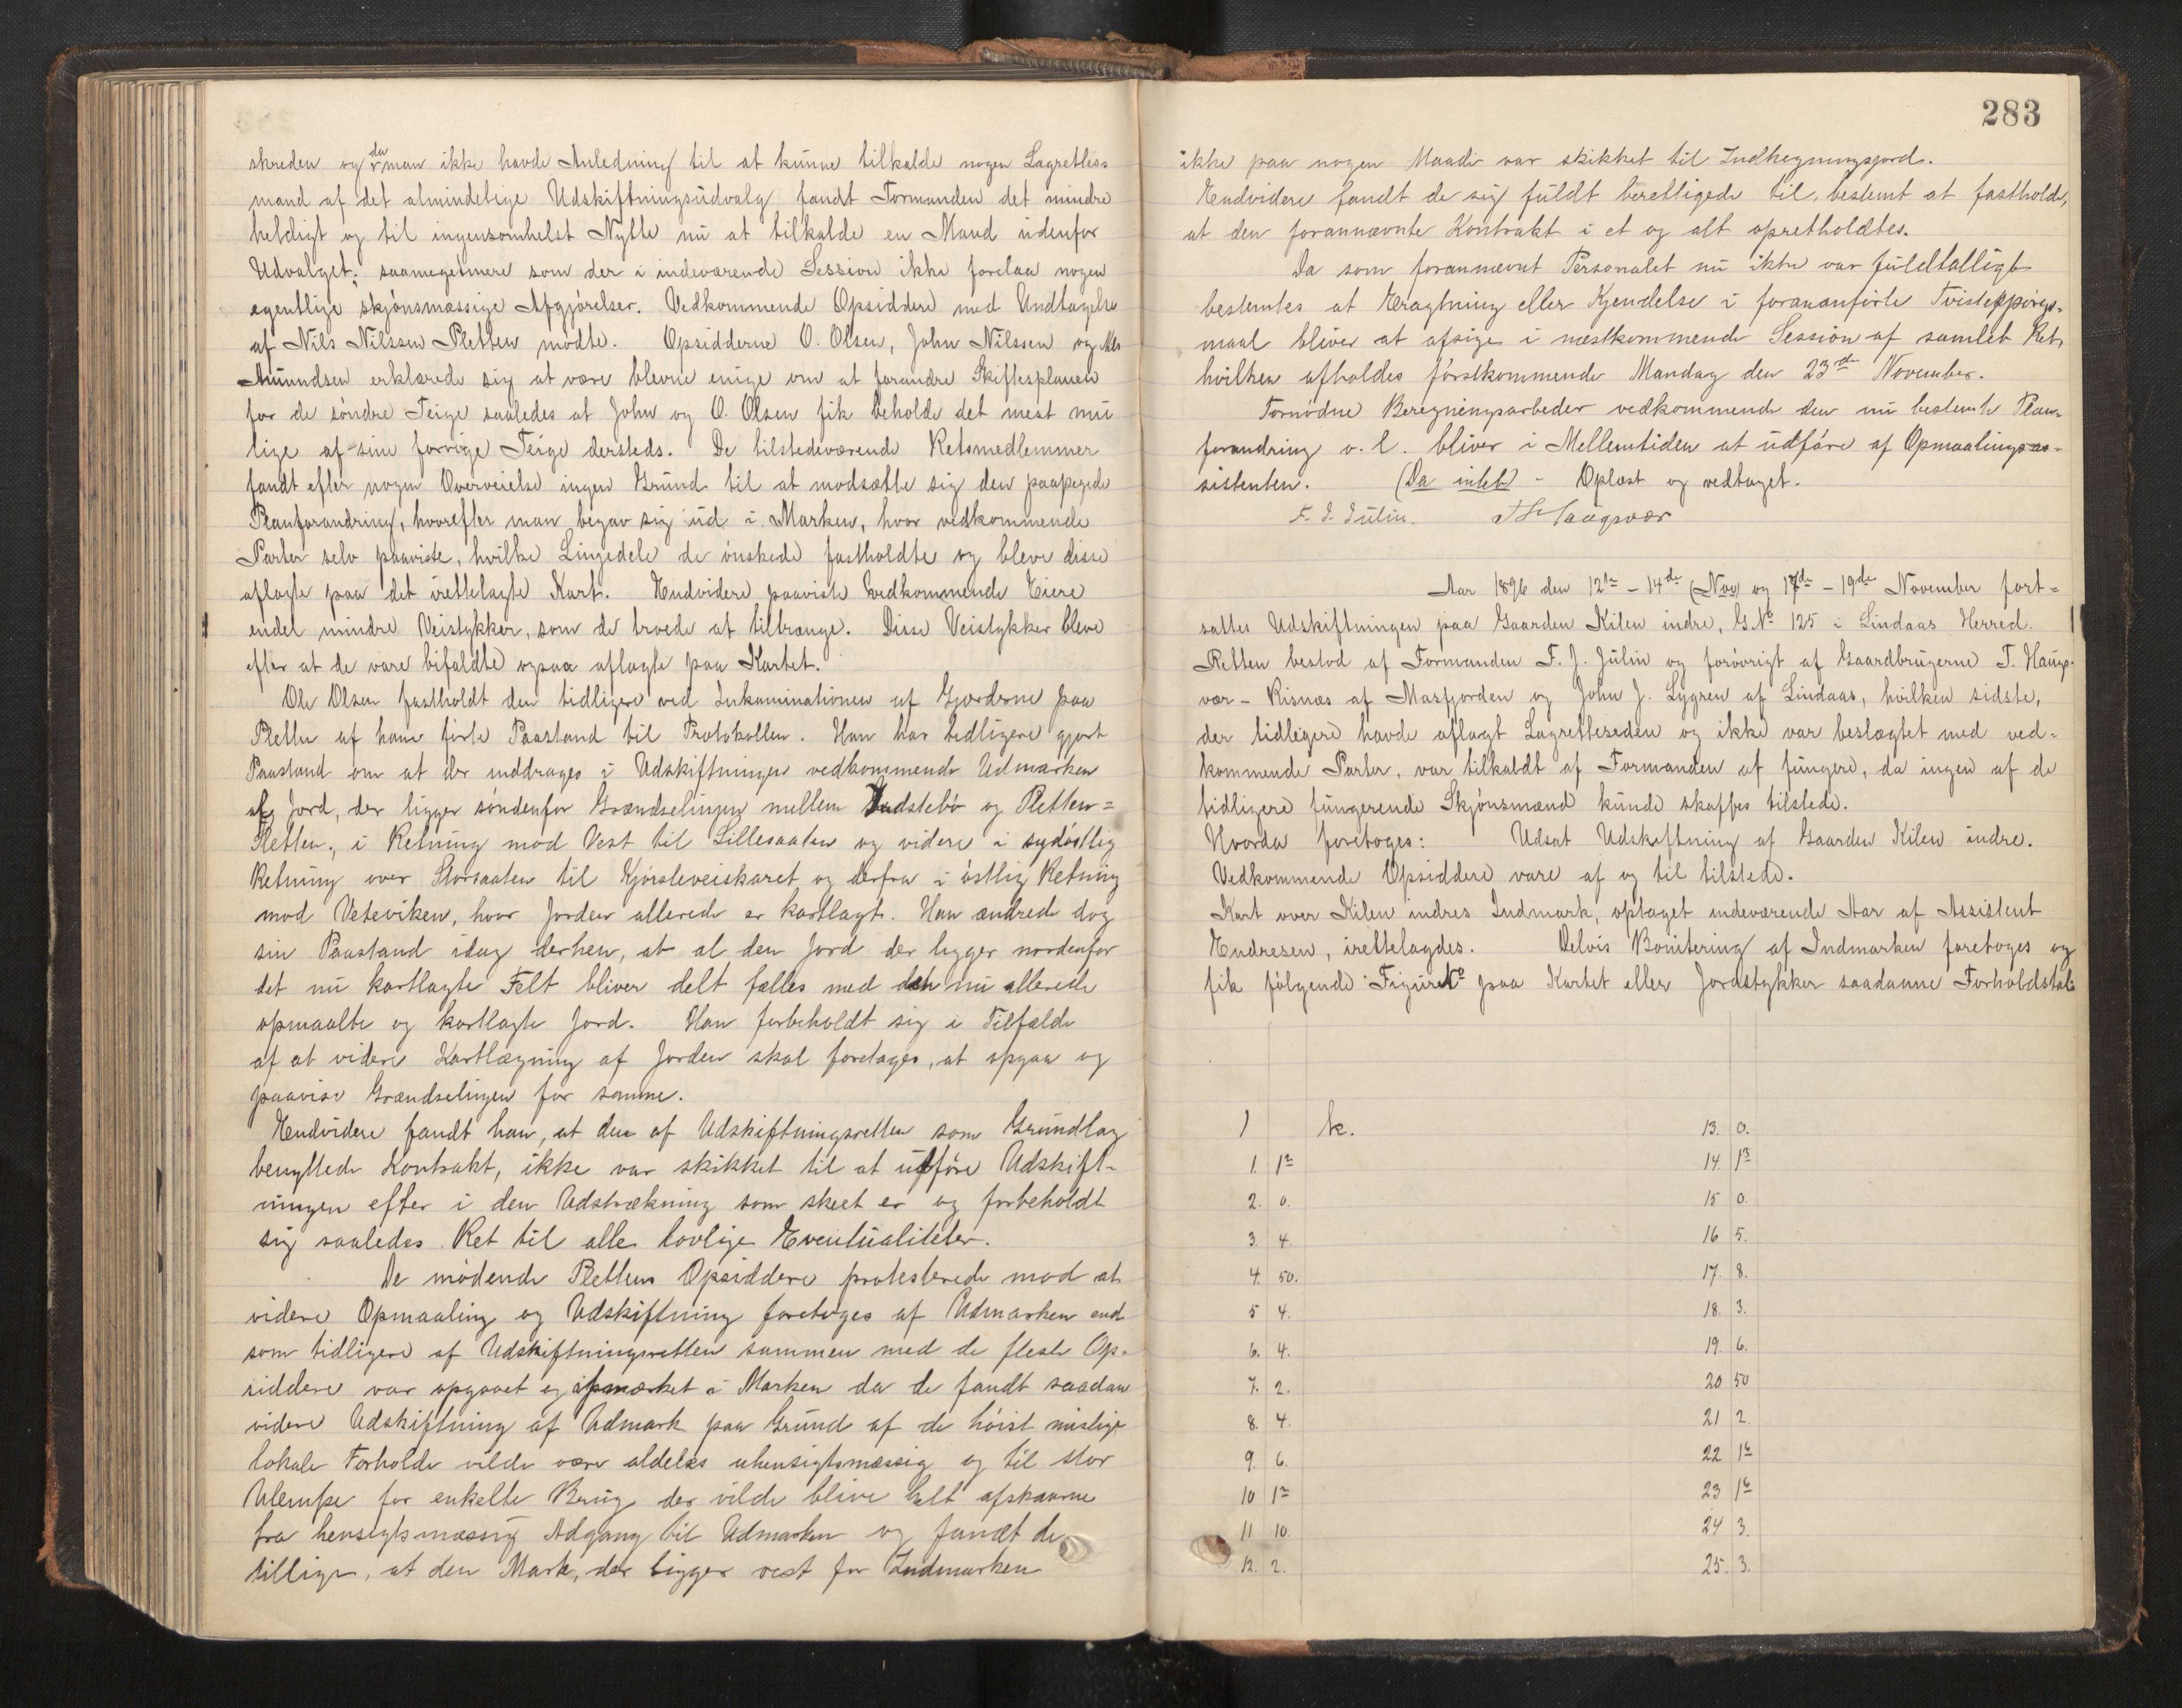 skreden og da man ikke havde Anledning til at kunne tilkalde nogen Lagrettes=
mand af det almindelige Udskiftningsudvalg fandt Formanden det mindre
heldigt og til ingensomhelst Nytte nu at tilkalde en Mand udenfor
Udvalget; saameget mere som der i indeværende Session ikke forelaa nogen
egentlige skjønsmæssige Afgjørelser. Vedkommende Opsiddere med Undtagelse
af Nils Nilssen Pletten mødte. Opsidderne O. Olsen, John Nilssen og Nils
Amundsen erklærede sig at være blevne enige om at forandre Skiftesplanen
for de søndre Teige saaledes at John og O. Olsen fik beholde det mest mu
lige af sine forrige Teige dersteds. De tilstedeværende Retsmedlemmer
fandt efter nogen Overveielse ingen Grund til at modsætte sig den paapegede
Planforandring, hvorefter man begav sig ud i Marken, hvor vedkommende
Parter selv paaviste, hvilke Linjedele de ønskede fastholdte og bleve disse
aflagte paa det irettelagte Kart. Endvidere paaviste vedkommende Eiere
endel mindre Veistykker, som de troede at tiltrænge. Disse Veistykker bleve
efter at de vare bifaldte ogsaa aflagte paa Kartet.
Ole Olsen fastholdt den tidligere ved Inkaminationen af Gjorderne paa
Pletten af ham førte Paastand til Protokollen. Han har tidligere gjort
Paastand om at der inddrages i Udskiftningen vedkommende Udmarken
al Jord, der ligger søndenfor Grændselinjen mellem Indstebø og Pletten=
Pletten, i Retning mod Vest til Lillesaaten og videre i sydøstlig
Retning over Storsaaten til Kjørsleveiskaret og derfra i østlig Retning
mod Veteviken, hvor Jorden allerede er kartlagt. Han ændrede dog
sin Paastand idag derhen, at al den Jord der ligger nordenfor
det nu kartlagte Felt bliver delt fælles med den nu allerede
opmaalte og kartlagte Jord. Han forbeholdt sig i Tilfælde
af at videre Kartlægning af Jorden skal foretages, at opgaa og
paavise Grændselinjen for samme.
Endvidere fandt han, at den af Udskiftningsretten som Grundlag
benyttede Kontrakt, ikke var skikket til at udføre Udskift-
ningen efter i den Udstrækning som skeet er og forbeholdt
sig saaledes Ret til alle lovlige Eventualiteter.
De mødende Plettens Opsiddere protesterede mod at
videre Opmaaling og Udskiftning foretages af Udmarken end
som tidligere af Udskiftningsretten sammen med de fleste Op-
siddere var opgaaet og afmærket i Marken da de fandt saadan
videre Udskiftning af Udmark paa Grund af de høist mislige
lokale Forholde vilde være aldeles uhensigtsmæssig og til stor
Ulempe for enkelte Brug der vilde blive helt afskaarne
fra hensigtsmæssig Adgang til Udmarken og fandt de
tillige, at den Mark, der ligger vest for Indmarken
283
ikke paa nogen Maade var skikket til Indhegningsjord.
Endvidere fandt de sig fuldt berettigede til, bestemt at fastholde,
at den forannævnte Kontrakt i et og alt opretholdtes.
Da som forannævnt Personalet nu ikke var fuldtalligt
bestemtes at Eragtning eller Kjendelse i forananførte Tvistespørgs-
maal bliver at afsige i næstkommende Session af samlet Ret,
hvilken afholdes førstkommende Mandag den 23de November.
Fornødne Beregningsarbeder vedkommende den nu bestemte Plan-
forandring o. l. bliver i Mellemtiden at udføre af Opmaalingsas-
sistenten. (Da intet) - Oplæst og vedtaget.
F. J. Julin. T Haugsvær
Aar 1896 den 12te - 14de (Nov) og 17de - 19de November fort=
sattes Udskiftningen paa Gaarden Kilen indre, G.No 125 i Lindaas Herred.
Retten bestod af Formanden F. J. Julin og forøvrigt af Gaardbrugerne T. Haugs-
vær - Risnæs af Masfjorden og John J. Lygren af Lindaas, hvilken sidste,
der tidligere havde aflagt Lagrettereden og ikke var beslægtet med ved=
kommende Parter, var tilkaldt af Formanden at fungere, da ingen af de
tidligere fungerende Skjønsmænd kunde skaffes tilstede.
Hvorda foretoges: Udsat Udskiftning af Gaarden Kilen indre.
Vedkommende Opsiddere vare af og til tilstede.
Kart over Kilen indres Indmark, optaget indeværende Aar af Assistent
Endresen, irettelagdes. Delvis Bonitering af Indmarken foretoges og
fik følgende Figure No paa Kartet eller Jordstykker saadanne Forholdstal:
1 k. 13. 0.
1. 1 2 14. 1 3
2. 0. 15 0.
3. 4. 16 5.
4. 50. 17. 8.
5 4. 18. 3.
6. 4. 19. 6.
7. 2. 20 50
8. 4. 21 2.
9. 6. 22 1 6
10 1 2 23 1 6
11 10. 24 3.
12. 2. 25. 3.